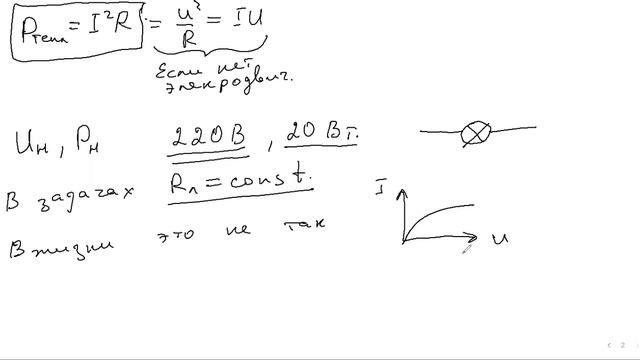 Pтепл = I²R = u²/R = IU
Если нет
электродвиг.
Uн, Pн 220В, 20 Вт.
В задачах Rл = const.
В жизни это не так
I
u
2